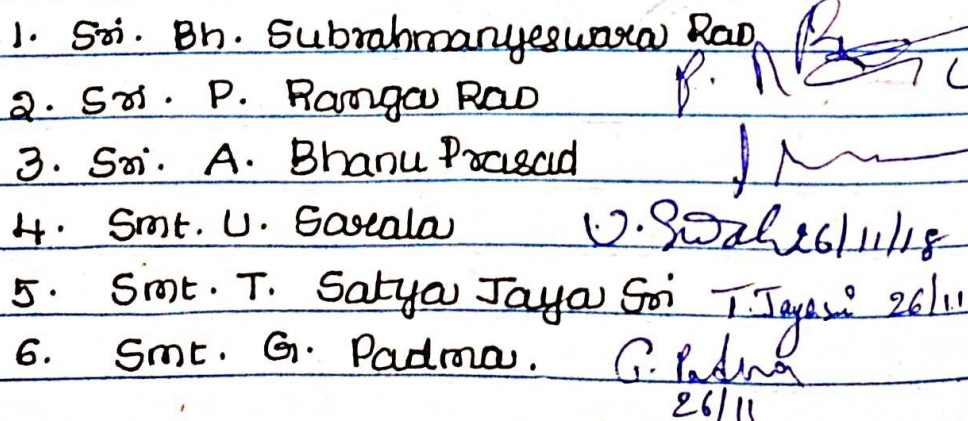 1. Sri. Bh. Subrahmanyeswara Rao
2. Sri. P. Ranga Rao P. R
3. Sri. A. Bhanu Prasad
4. Smt. U. Sarala U. Sarala 26/11/18
5. Smt. T. Satya Jaya Sri T. Jayasri 26/11
6. Smt. G. Padma. G. Padma
26/11